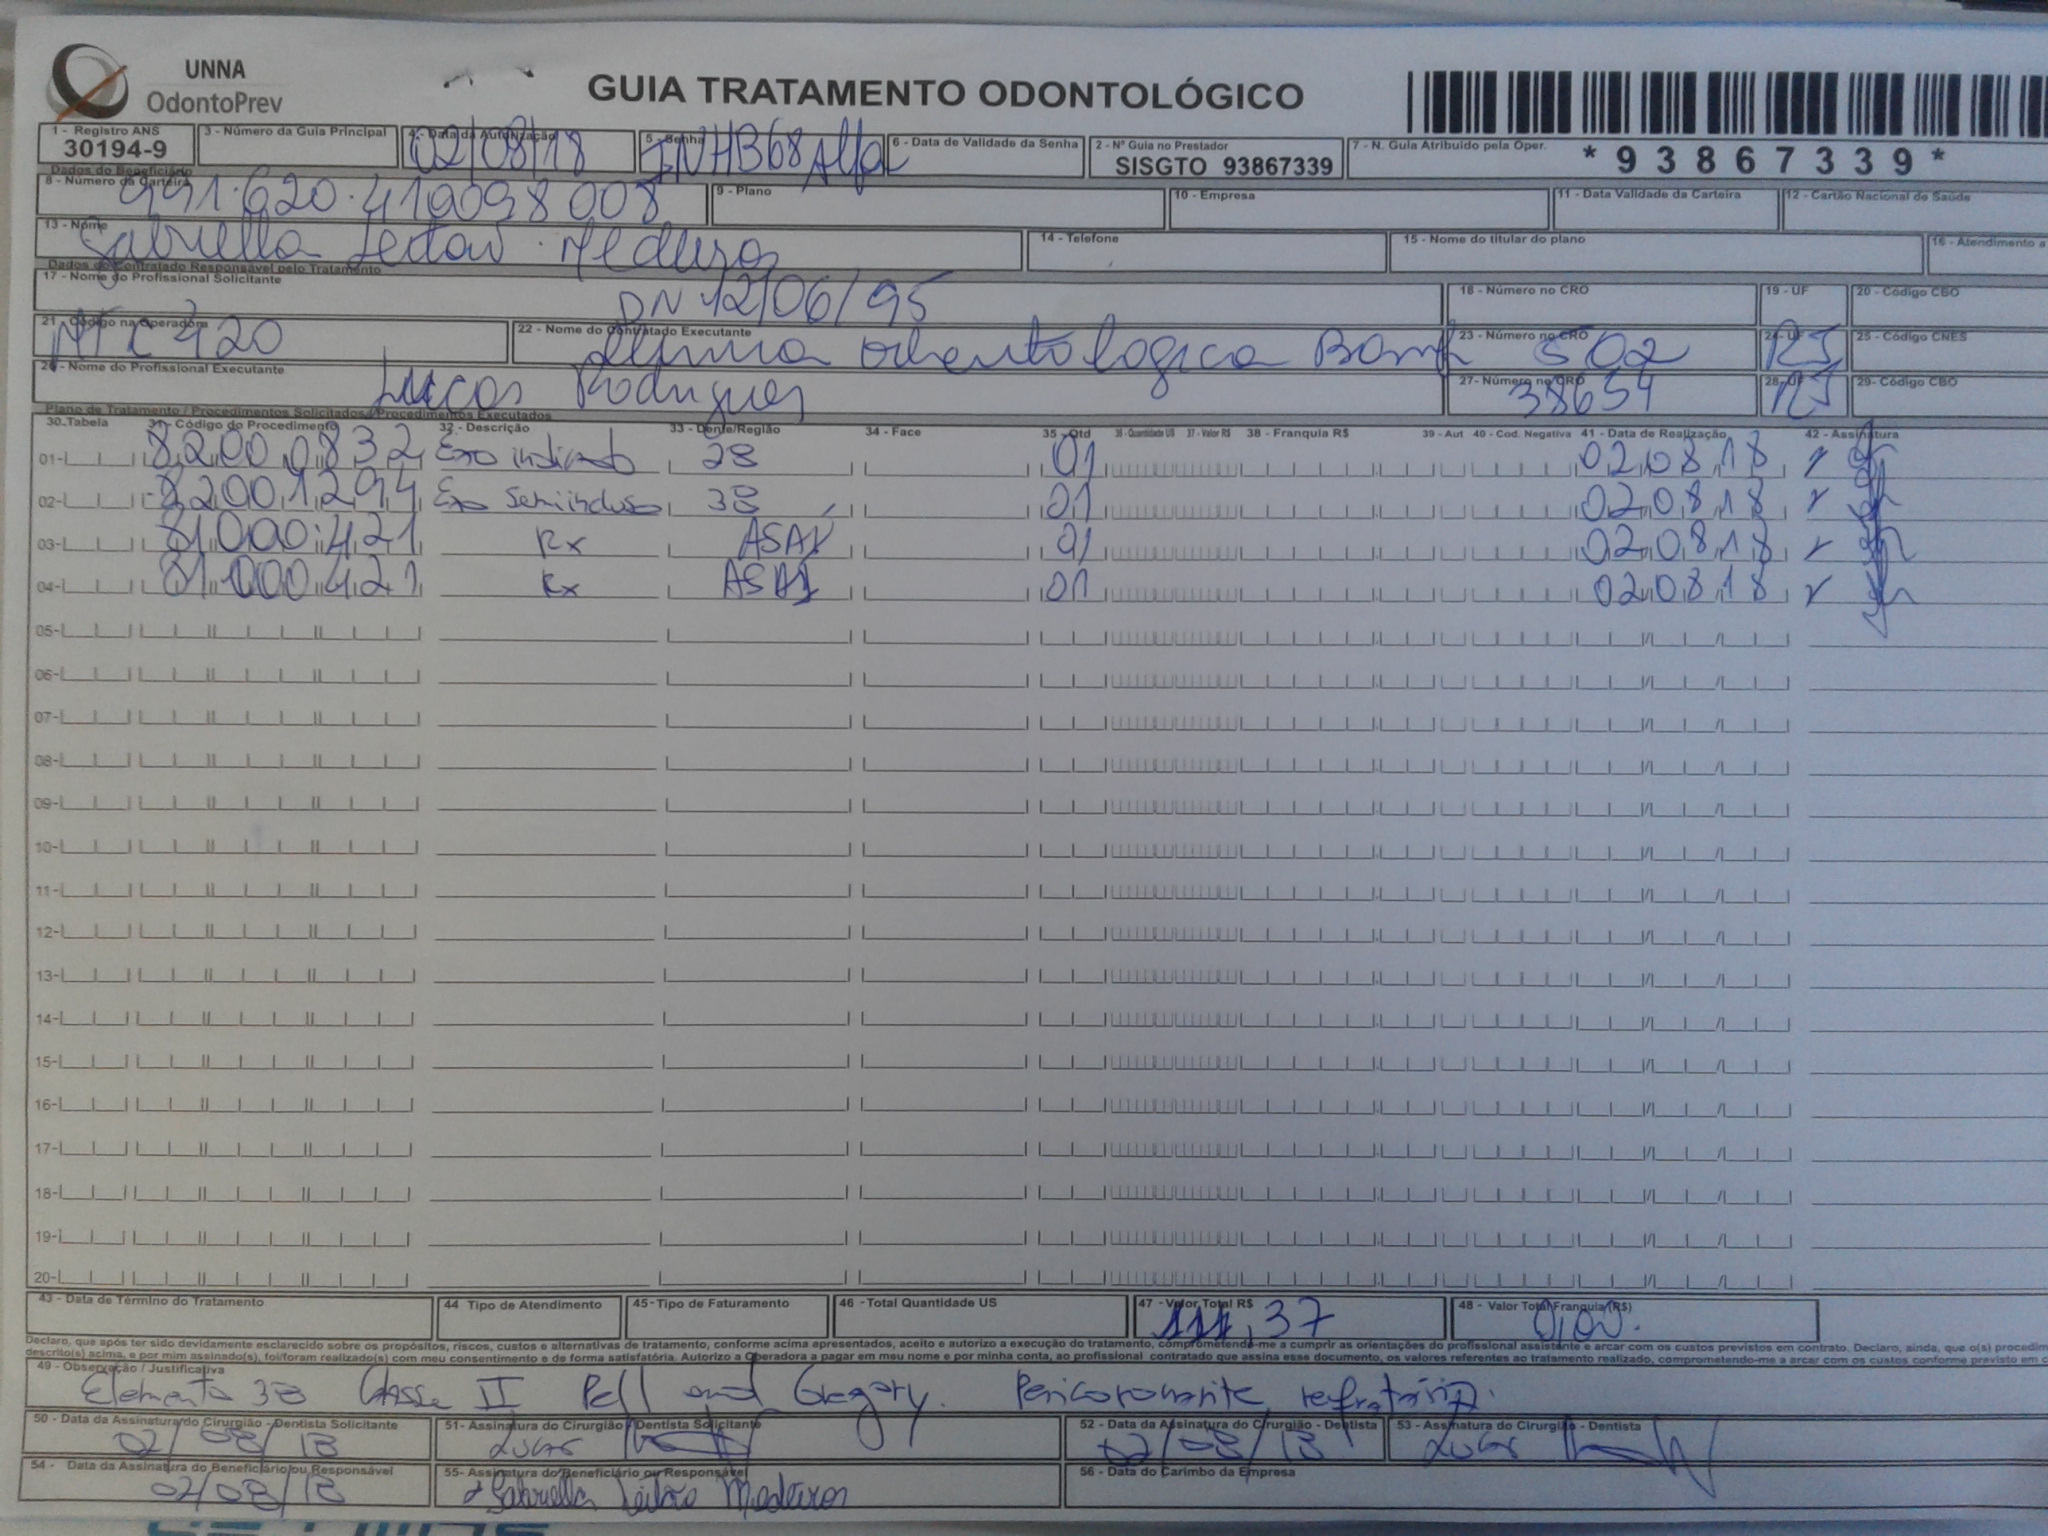 UNNA
OdontoPrev
GUIA TRATAMENTO ODONTOLÓGICO
1 - Registro ANS
30194-9
3 - Número da Guia Principal
4 - Data da Autorização
02/08/18
5 - Senha
6 - Data de Validade da Senha
2 - Nº Guia no Prestador
SISGTO 93867339
7 - N. Guia Atribuído pela Oper.
* 93867339 *
Dados do Beneficiário
8 - Número da Carteira
9 - Plano
10 - Empresa
11 - Data Validade da Carteira
12 - Cartão Nacional de Saúde
13 - Nome
14 - Telefone
15 - Nome do titular do plano
16 - Atendimento a
Dados do Contratado Responsável pelo Tratamento
17 - Nome do Profissional Solicitante
DN 12/06/95
18 - Número no CRO
19 - UF
20 - Código CBO
21 - Código na Operadora
22 - Nome do Contratado Executante
23 - Número no CRO
502
24 - UF
RJ
25 - Código CNES
26 - Nome do Profissional Executante
Lucas Rodrigues
27 - Número no CRO
38654
28 - UF
RJ
29 - Código CBO
Plano de Tratamento / Procedimentos Solicitados / Procedimentos Executados
30.Tabela 31 - Código do Procedimento 32 - Descrição 33 - Dente/Região 34 - Face 35 - Qtd 36 - Quantidade US 37 - Valor R$ 38 - Franquia R$ 39 - Aut 40 - Cod. Negativa 41 - Data de Realização 42 - Assinatura
01- 82000832 28 01 020818
02- 82001294 38 01 020818
03- 81000421 RX 01 020818
04- 81000421 RX 01 020818
05-
06-
07-
08-
09-
10-
11-
12-
13-
14-
15-
16-
17-
18-
19-
20-
43 - Data de Término do Tratamento
44 Tipo de Atendimento
45 - Tipo de Faturamento
46 - Total Quantidade US
47 - Valor Total R$
48 - Valor Total Franquia (R$)
0,00
Declaro, que após ter sido devidamente esclarecido sobre os propósitos, riscos, custos e alternativas de tratamento, conforme acima apresentados, aceito e autorizo a execução do tratamento, comprometendo-me a cumprir as orientações do profissional assistente e arcar com os custos previstos em contrato. Declaro, ainda, que o(s) procedim
descrito(s) acima, e por mim assinado(s), foi/foram realizado(s) com meu consentimento e de forma satisfatória. Autorizo a operadora a pagar em meu nome e por minha conta, ao profissional contratado que assina esse documento, os valores referentes ao tratamento realizado, comprometendo-me a arcar com os custos conforme previsto em c
49 - Observação / Justificativa
Elemento 38 Classe II Pell and Gregory. Pericoronarite
50 - Data da Assinatura do Cirurgião - Dentista Solicitante
02/08/18
51- Assinatura do Cirurgião - Dentista Solicitante
52 - Data da Assinatura do Cirurgião - Dentista
02/08/18
53 - Assinatura do Cirurgião - Dentista
54 - Data da Assinatura do Beneficiário ou Responsável
02/08/18
55- Assinatura do Beneficiário ou Responsável
56 - Data do Carimbo da Empresa